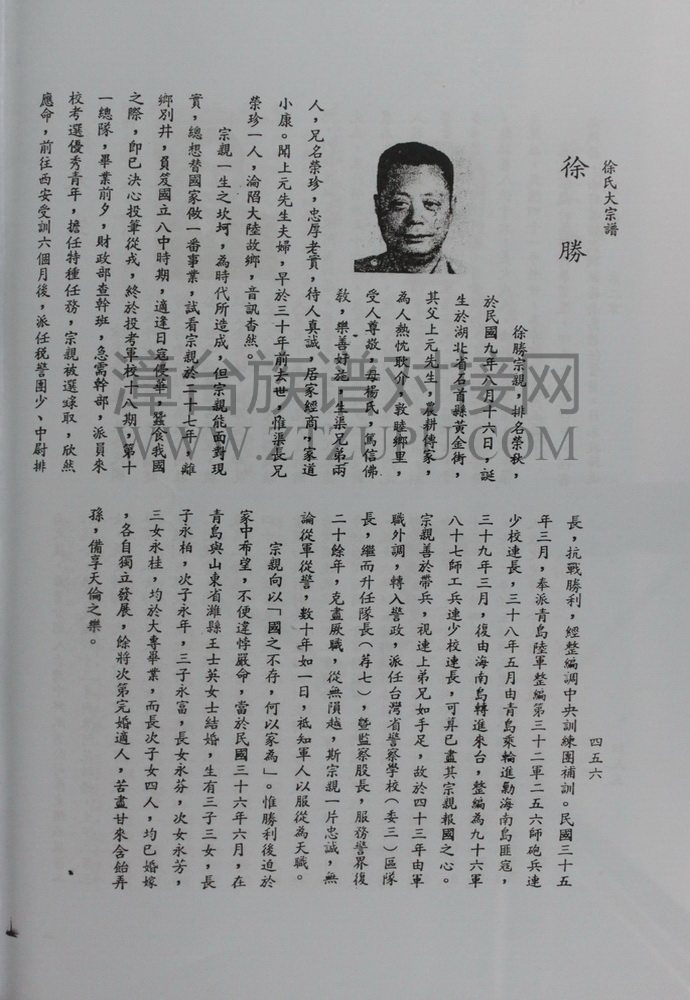 徐氏大宗譜
徐勝
徐勝宗親，排名榮秋，
於民國九年八月十六日，誕
生於湖北省石首縣黃金街，
其父上元先生，農耕傳家，
為人熱忱耿介，敦睦鄉里，
受人尊敬，母楊氏，篤信佛
教，樂善好施，生渠兄弟兩
人，兄名榮珍，忠厚老實，待人真誠，居家經商，家道
小康。聞上元先生夫婦，早於三十年前去世，惟渠長兄
榮珍一人，淪陷大陸故鄉，音訊杳然。
宗親一生之坎坷，為時代所造成，但宗親能面對現
實，總想替國家做一番事業，試看宗親於二十七年，離
鄉別井，負笈國立八中時期，適逢日寇侵華，蠶食我國
之際，即已決心投筆從戎，終於投考軍校十八期，第十
一總隊，畢業前夕，財政部查幹班，急需幹部，派員來
校考選優秀青年，擔任特種任務，宗親被選錄取，欣然
應命，前往西安受訓六個月後，派任稅警團少、中尉排
長，抗戰勝利，經整編調中央訓練團補訓。民國三十五
年三月，奉派青島陸軍整編第三十二軍二五六師砲兵連
少校連長，三十八年五月由青島乘輪進勦海南島匪寇，
三十九年三月，復由海南島轉進來台，整編為九十六軍
八十七師工兵連少校連長，可算已盡其宗親報國之心。
宗親善於帶兵，視連上弟兄如手足，故於四十三年由軍
職外調，轉入警政，派任台灣省警察學校（委三）區隊
長，繼而升任隊長（荐七），暨監察股長，服務警界復
二十餘年，克盡厥職，從無隕越，斯宗親一片忠誠，無
論從軍從警，數十年如一日，祗知軍人以服從為天職。
宗親向以「國之不存，何以家為」。惟勝利後迫於
家中希望，不便違悖嚴命，當於民國三十六年六月，在
青島與山東省濰縣王士英女士結婚，生有三子三女，長
子永柏，次子永年，三子永富，長女永芬，次女永芳，
三女永桂，均於大專畢業，而長次子女四人，均已婚嫁
，各自獨立發展，餘將次第完婚適人，苦盡甘來含飴弄
孫，備享天倫之樂。
四五六
漳台族谱对接网
WWW.ZTZUPU.COM